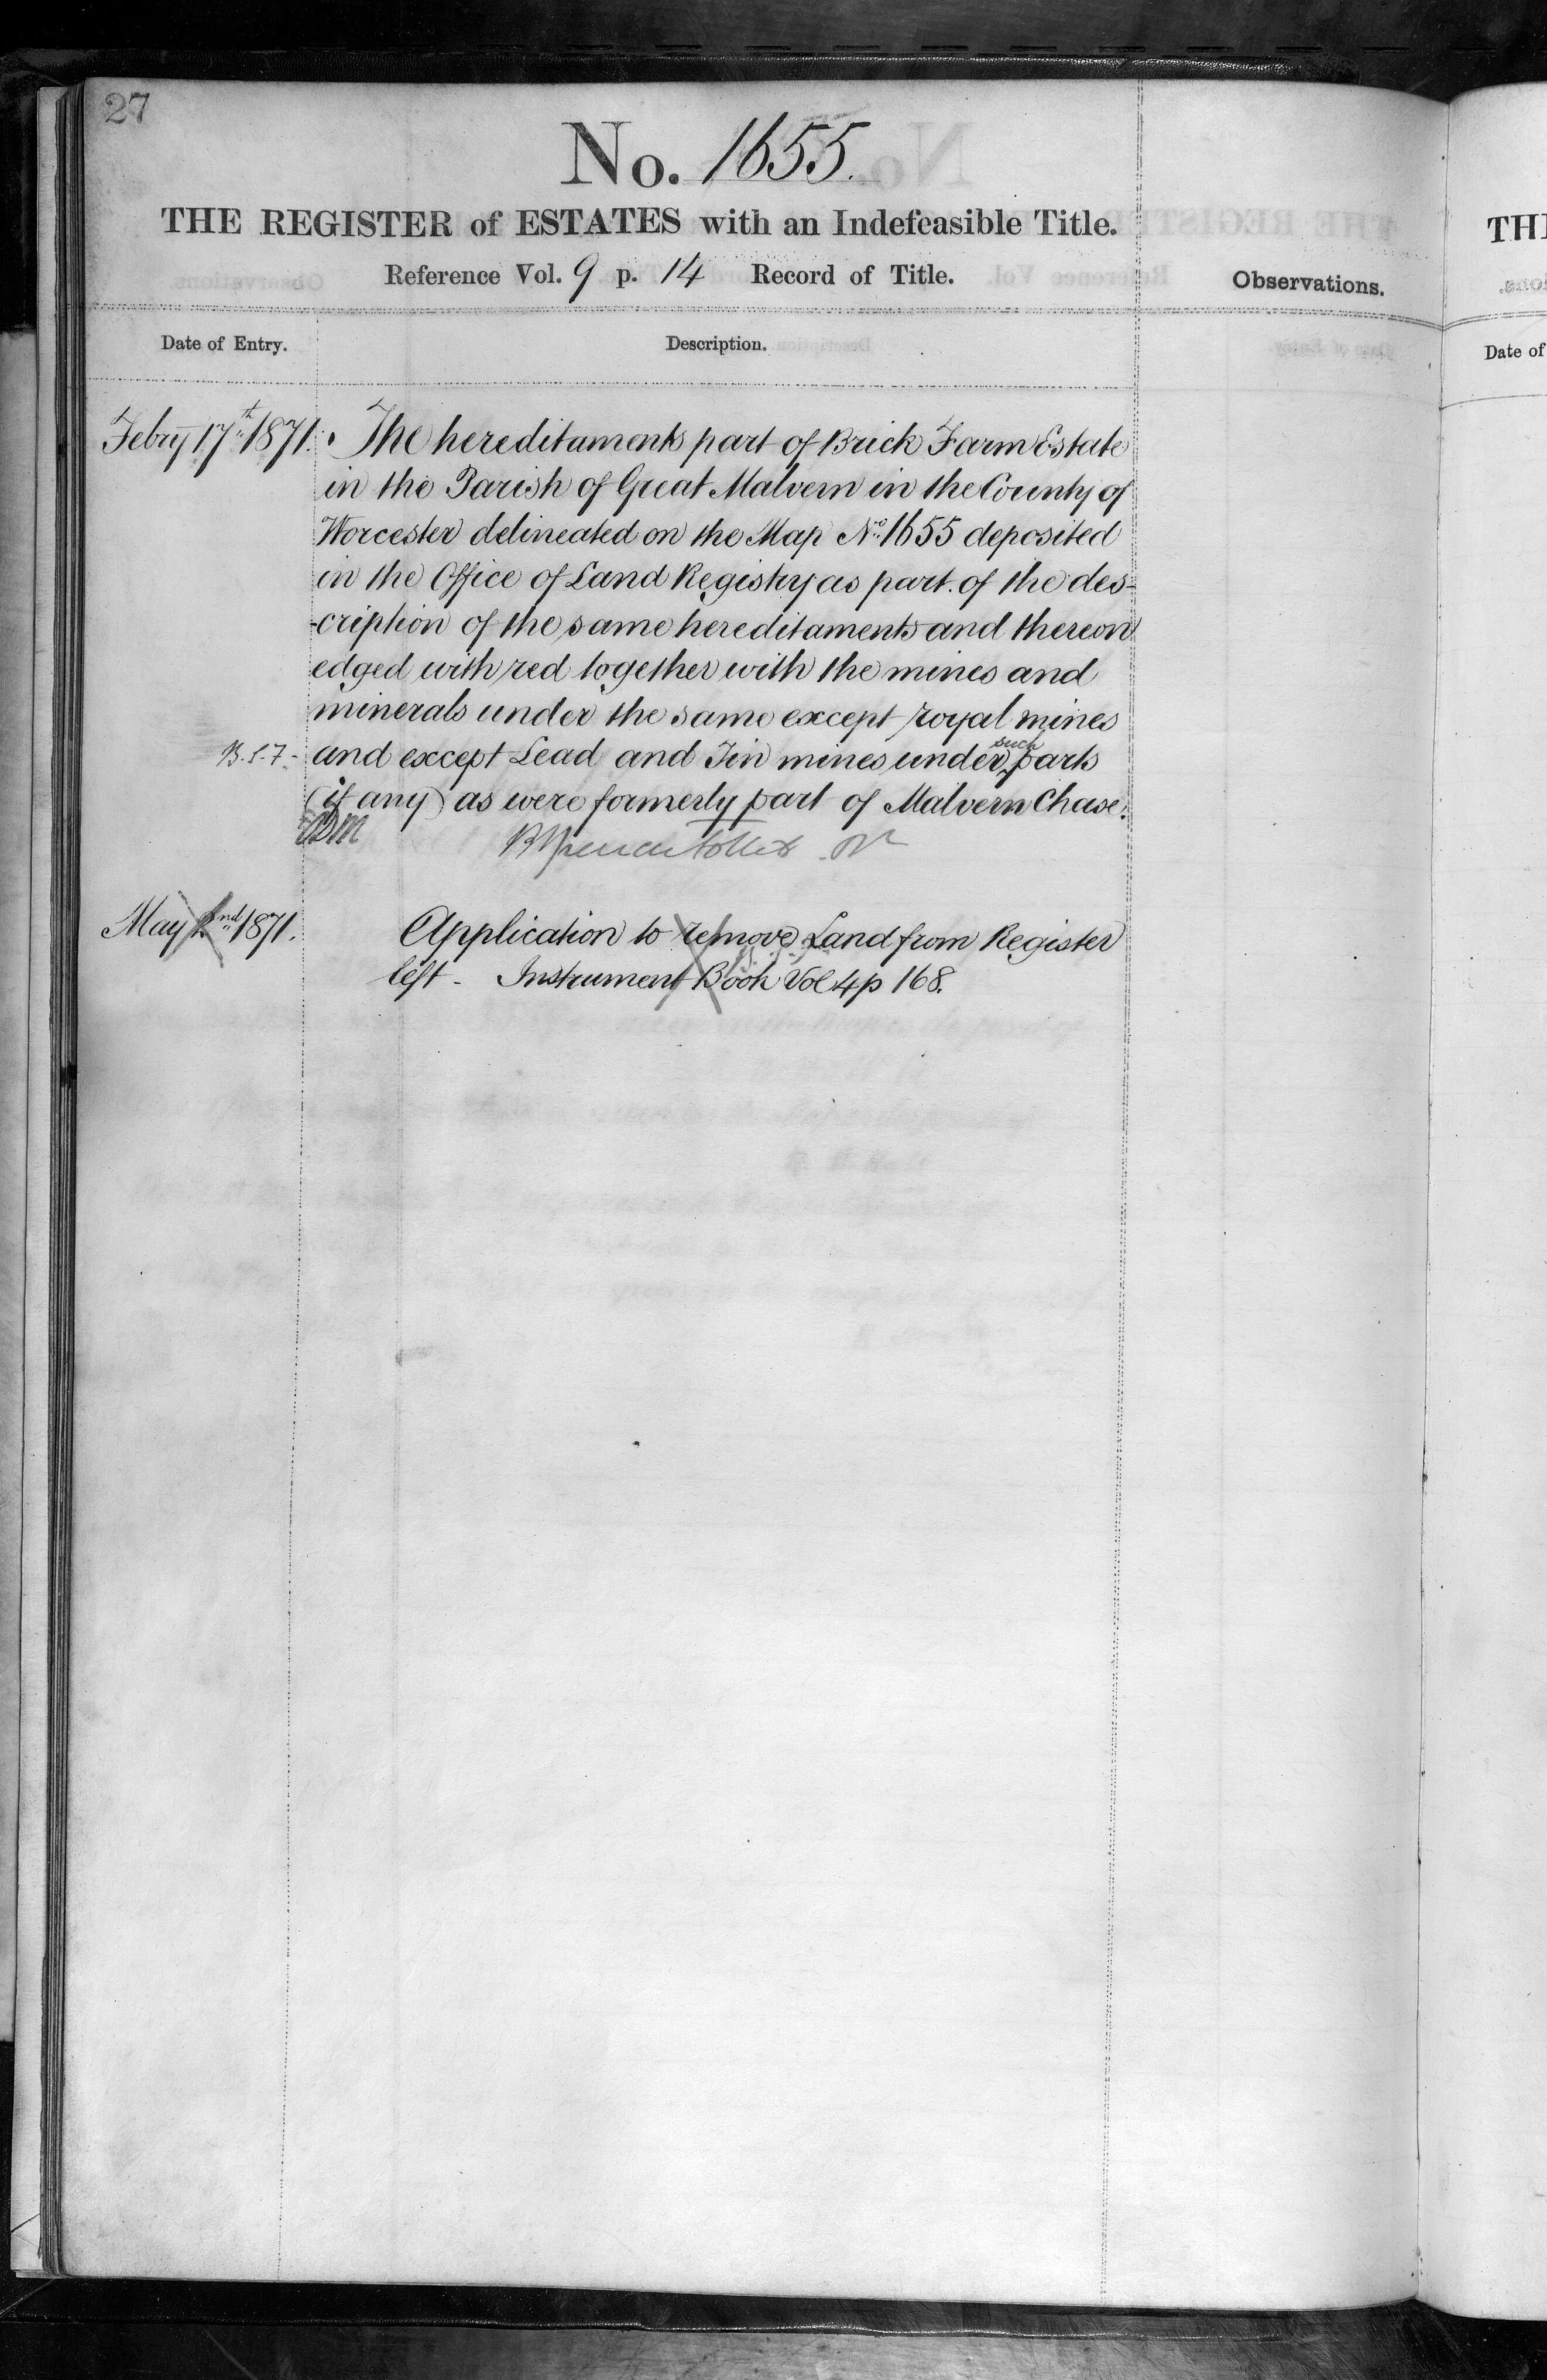 27
No. 1655.
THE REGISTER of ESTATES with an Indefeasible Title.
Reference Vol. 9 p. 14 Record of Title.
Observations.
Date of Entry.
Description.
Febry 17th 1871. The hereditaments part of Brick Farm Estate
in the Parish of Great Malvern in the County of
Worcester delineated on the Map No. 1655 deposited
in the Office of Land Registry as part of the des-
-cription of the same hereditaments and thereon
edged with red together with the mines and
minerals under the same except royal mines
B.S.F. and except Lead and Tin mines under such parts
(if any) as were formerly part of Malvern Chase.
May 2nd 1871. Application to remove Land from Register
left - Instrument Book Vol 4 p 168.
THE
Date of